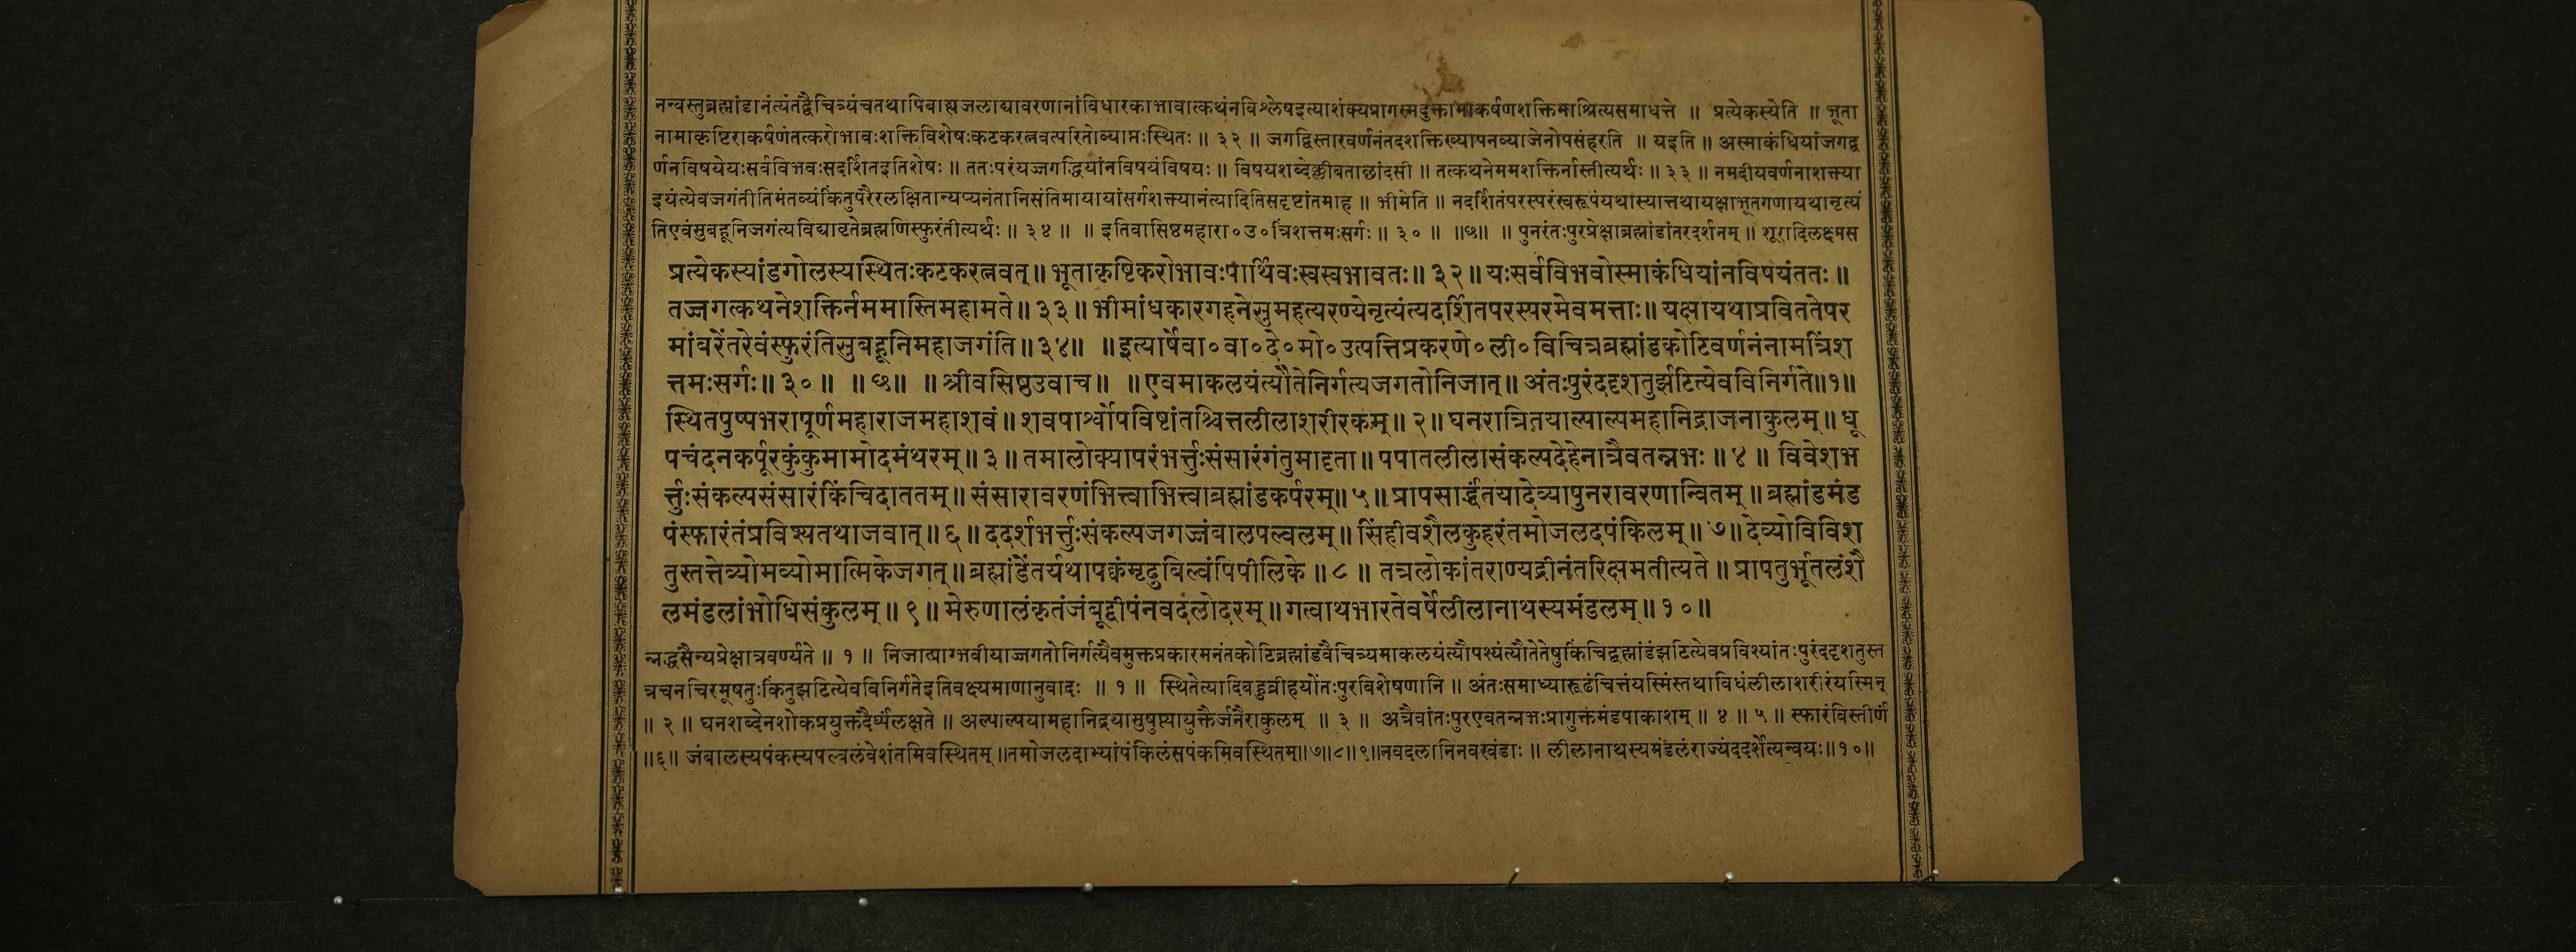 नन्वस्तुब्रह्मांडानंत्यंतद्वैचित्र्यंचतथापिबाह्यजलाद्यावरणानांविधारकाभावात्कथंनविश्लेषइत्याशंक्यप्रागस्मदुक्तामाकर्षणशक्तिमाश्रित्यसमाधत्ते ॥ प्रत्येकस्येति ॥ भूता
नामाकृष्टिराकर्षणंतत्करोभावःशक्तिविशेषःकटकरत्नवत्परितोव्याप्तःस्थितः ॥ ३२ ॥ जगद्विस्तारवर्णनंतदशक्तिख्यापनव्याजेनोपसंहरति ॥ यइति ॥ अस्माकंधियांजगद्व
र्णनविषयेयःसर्वविभवःसदर्शितइतिशेषः ॥ ततःपरंयज्जगद्धियांनविषयंविषयः ॥ विषयशब्देक्लीबताछांदसी ॥ तत्कथनेममशक्तिर्नास्तीत्यर्थः ॥ ३३ ॥ नमदीयवर्णनाशक्त्या
इयंत्येवजगंतीतिमंतव्यंकिंतुपरैरलक्षितान्यप्यनंतानिसंतिमायायांसर्गशक्त्यानंत्यादितिसदृष्टांतमाह ॥ भीमेति ॥ नदर्शितंपरस्परंस्वरूपंयथास्यात्तथायक्षाभूतगणायथानृत्यं
तिएवंसुबहूनिजगंत्यविद्यावृतेब्रह्मणिस्फुरंतीत्यर्थः ॥ ३४ ॥ ॥ इतिवासिष्ठमहारा०उ०त्रिंशत्तमःसर्गः ॥ ३० ॥ ॥७॥ ॥ पुनरंतःपुरप्रेक्षाब्रह्मांडांतरदर्शनम् ॥ शूरादिलक्ष्मस
प्रत्येकस्यांडगोलस्यस्थितःकटकरत्नवत् ॥ भूताकृष्टिकरोभावःपार्थिवःस्वस्वभावतः ॥ ३२ ॥ यःसर्वविभवोस्माकंधियांनविषयंततः ॥
तज्जगत्कथनेशक्तिर्नममास्तिमहामते ॥ ३३ ॥ भीमांधकारगहनेसुमहत्यरण्येनृत्यंत्यदर्शितपरस्परमेवमत्ताः ॥ यक्षायथाप्रविततेपर
मांबरेंतरेवंस्फुरंतिसुबहूनिमहाजगंति ॥ ३४ ॥ ॥ इत्यार्षेवा०वा०दे०मो०उत्पत्तिप्रकरणे०ली०विचित्रब्रह्मांडकोटिवर्णनंनामत्रिंश
त्तमःसर्गः ॥ ३० ॥ ॥ ७ ॥ ॥ श्रीवसिष्ठउवाच ॥ ॥ एवमाकलयंत्यौतेनिर्गत्यजगतोनिजात् ॥ अंतःपुरंददृशतुर्झटित्येवविनिर्गते ॥ १ ॥
स्थितपुष्पभरापूर्णमहाराजमहाशवं ॥ शवपार्श्वोपविष्टांतश्चित्तलीलाशरीरकम् ॥ २ ॥ घनरात्रितयाल्पाल्पमहानिद्राजनाकुलम् ॥ धू
पचंदनकर्पूरकुंकुमामोदमंथरम् ॥ ३ ॥ तमालोक्यापरंभर्त्तुःसंसारंगंतुमादृता ॥ पपातलीलासंकल्पदेहेनात्रैवतन्नभः ॥ ४ ॥ विवेशभ
र्त्तुःसंकल्पसंसारंकिंचिदाततम् ॥ संसारावरणंभित्त्वाभित्त्वाब्रह्मांडकर्परम् ॥ ५ ॥ प्रापसार्द्धंतयादेव्यापुनरावरणान्वितम् ॥ ब्रह्मांडमंड
पंस्फारंतंप्रविश्यतथाजवात् ॥ ६ ॥ ददर्शभर्त्तुःसंकल्पजगज्जंबालपल्वलम् ॥ सिंहीवशैलकुहरंतमोजलदपंकिलम् ॥ ७ ॥ देव्योविविश
तुस्तत्तेव्योमव्योमात्मिकेजगत् ॥ ब्रह्मांडेंतर्यथापक्वंमृदुबिल्वंपिपीलिके ॥ ८ ॥ तत्रलोकांतराण्यद्रीनंतरिक्षमतीत्यते ॥ प्रापतुर्भूतलंशै
लमंडलांभोधिसंकुलम् ॥ ९ ॥ मेरुणालंकृतंजंबूद्वीपंनवदलोदरम् ॥ गत्वाथभारतेवर्षेलीलानाथस्यमंडलम् ॥ १० ॥
न्नद्धसैन्यप्रेक्षात्रवर्ण्यते ॥ १ ॥ निजात्प्राग्भवीयाज्जगतोनिर्गत्यैवमुक्तप्रकारमनंतकोटिब्रह्मांडवैचित्र्यमाकलयंत्यौपश्यंत्यौतेतेषुकिंचिद्ब्रह्मांडंझटित्येवप्रविश्यांतःपुरंददृशतुस्त
त्रचनचिरमूषतुःकिंतुझटित्येवविनिर्गतेइतिवक्ष्यमाणानुवादः ॥ १ ॥ स्थितेत्यादिबहुव्रीहयोंतःपुरविशेषणानि ॥ अंतःसमाध्यारूढंचित्तंयस्मिंस्तथाविधंलीलाशरीरंयस्मिन्
॥ २ ॥ घनशब्देनशोकप्रयुक्तंदैर्घ्यंलक्षते ॥ अल्पाल्पयामहानिद्रयासुषुप्त्यायुक्तैर्जनैराकुलम् ॥ ३ ॥ अत्रैवांतःपुरएवतन्नभःप्रागुक्तंमंडपाकाशम् ॥ ४ ॥ ५ ॥ स्फारंविस्तीर्णं
॥६॥ जंबालस्यपंकस्यपल्वलंवेशंतमिवस्थितम् ॥तमोजलदाभ्यांपंकिलंसपंकमिवस्थितम्॥७॥८॥९॥नवदलानिनवखंडाः ॥ लीलानाथस्यमंडलंराज्यंददर्शेत्यन्वयः॥१०॥